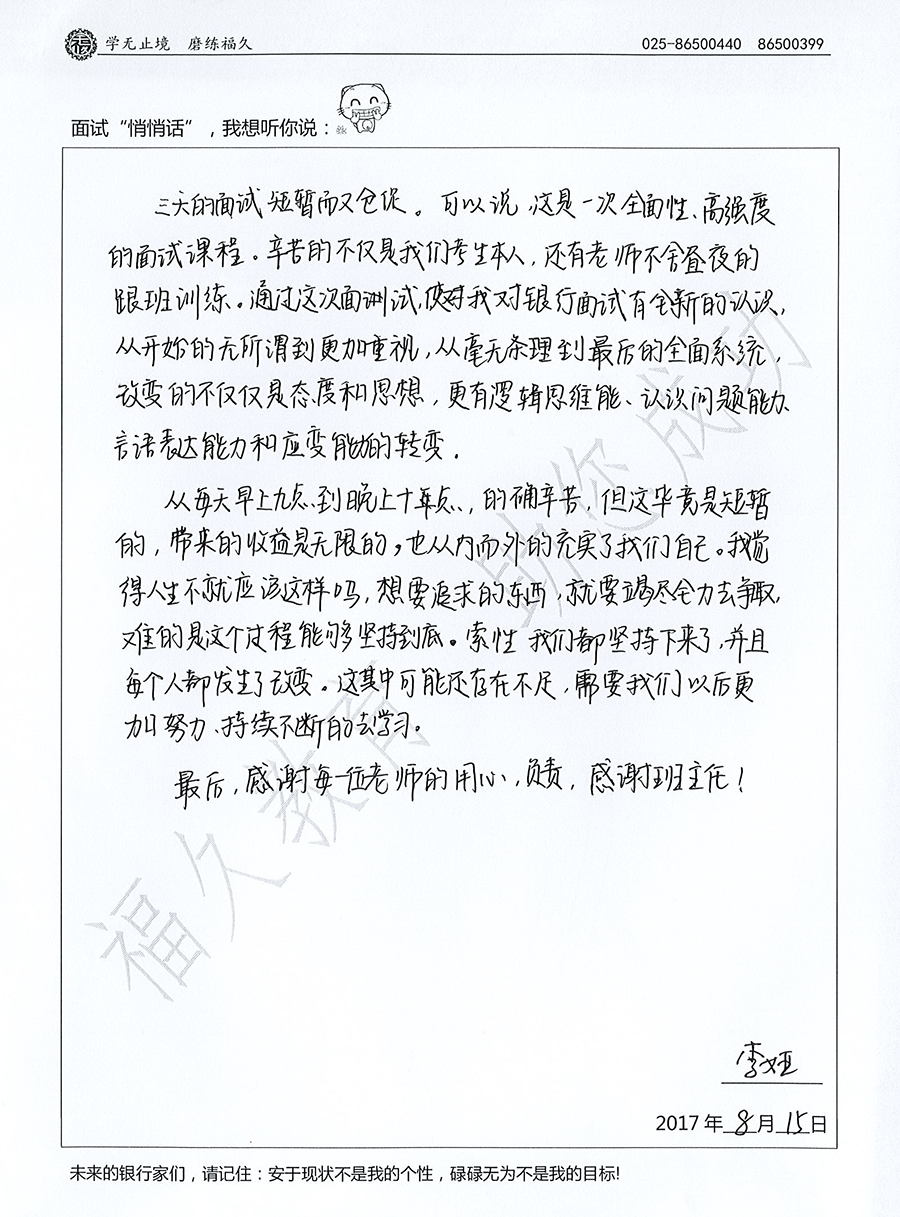 学无止境 磨练福久
025-86500440 86500399
面试“悄悄话”，我想听你说：
三天的面试短暂而又仓促。可以说，这是一次全面性、高强度
的面试课程。辛苦的不仅是我们考生本人，还有老师不舍昼夜的
跟班训练。通过这次面试，使我对银行面试有全新的认识，
从开始的无所谓到更加重视，从毫无条理到最后的全面系统，
改变的不仅仅是态度和思想，更有逻辑思维能、认识问题能力、
言语表达能力和应变能力的转变．
从每天早上九点到晚上十点，的确辛苦，但这毕竟是短暂
的，带来的收益是无限的，也从内而外的充实了我们自己。我觉
得人生不就应该这样吗，想要追求的东西，就要竭尽全力去争取，
难的是这个过程能够坚持到底。索性我们都坚持下来了，并且
每个人都发生了改变。这其中可能还存在不足，需要我们以后更
加努力、持续不断的去学习。
最后，感谢每一位老师的用心，负责，感谢班主任！
福久教育 助您成功
李娅
2017年8月15日
未来的银行家们，请记住：安于现状不是我的个性，碌碌无为不是我的目标!